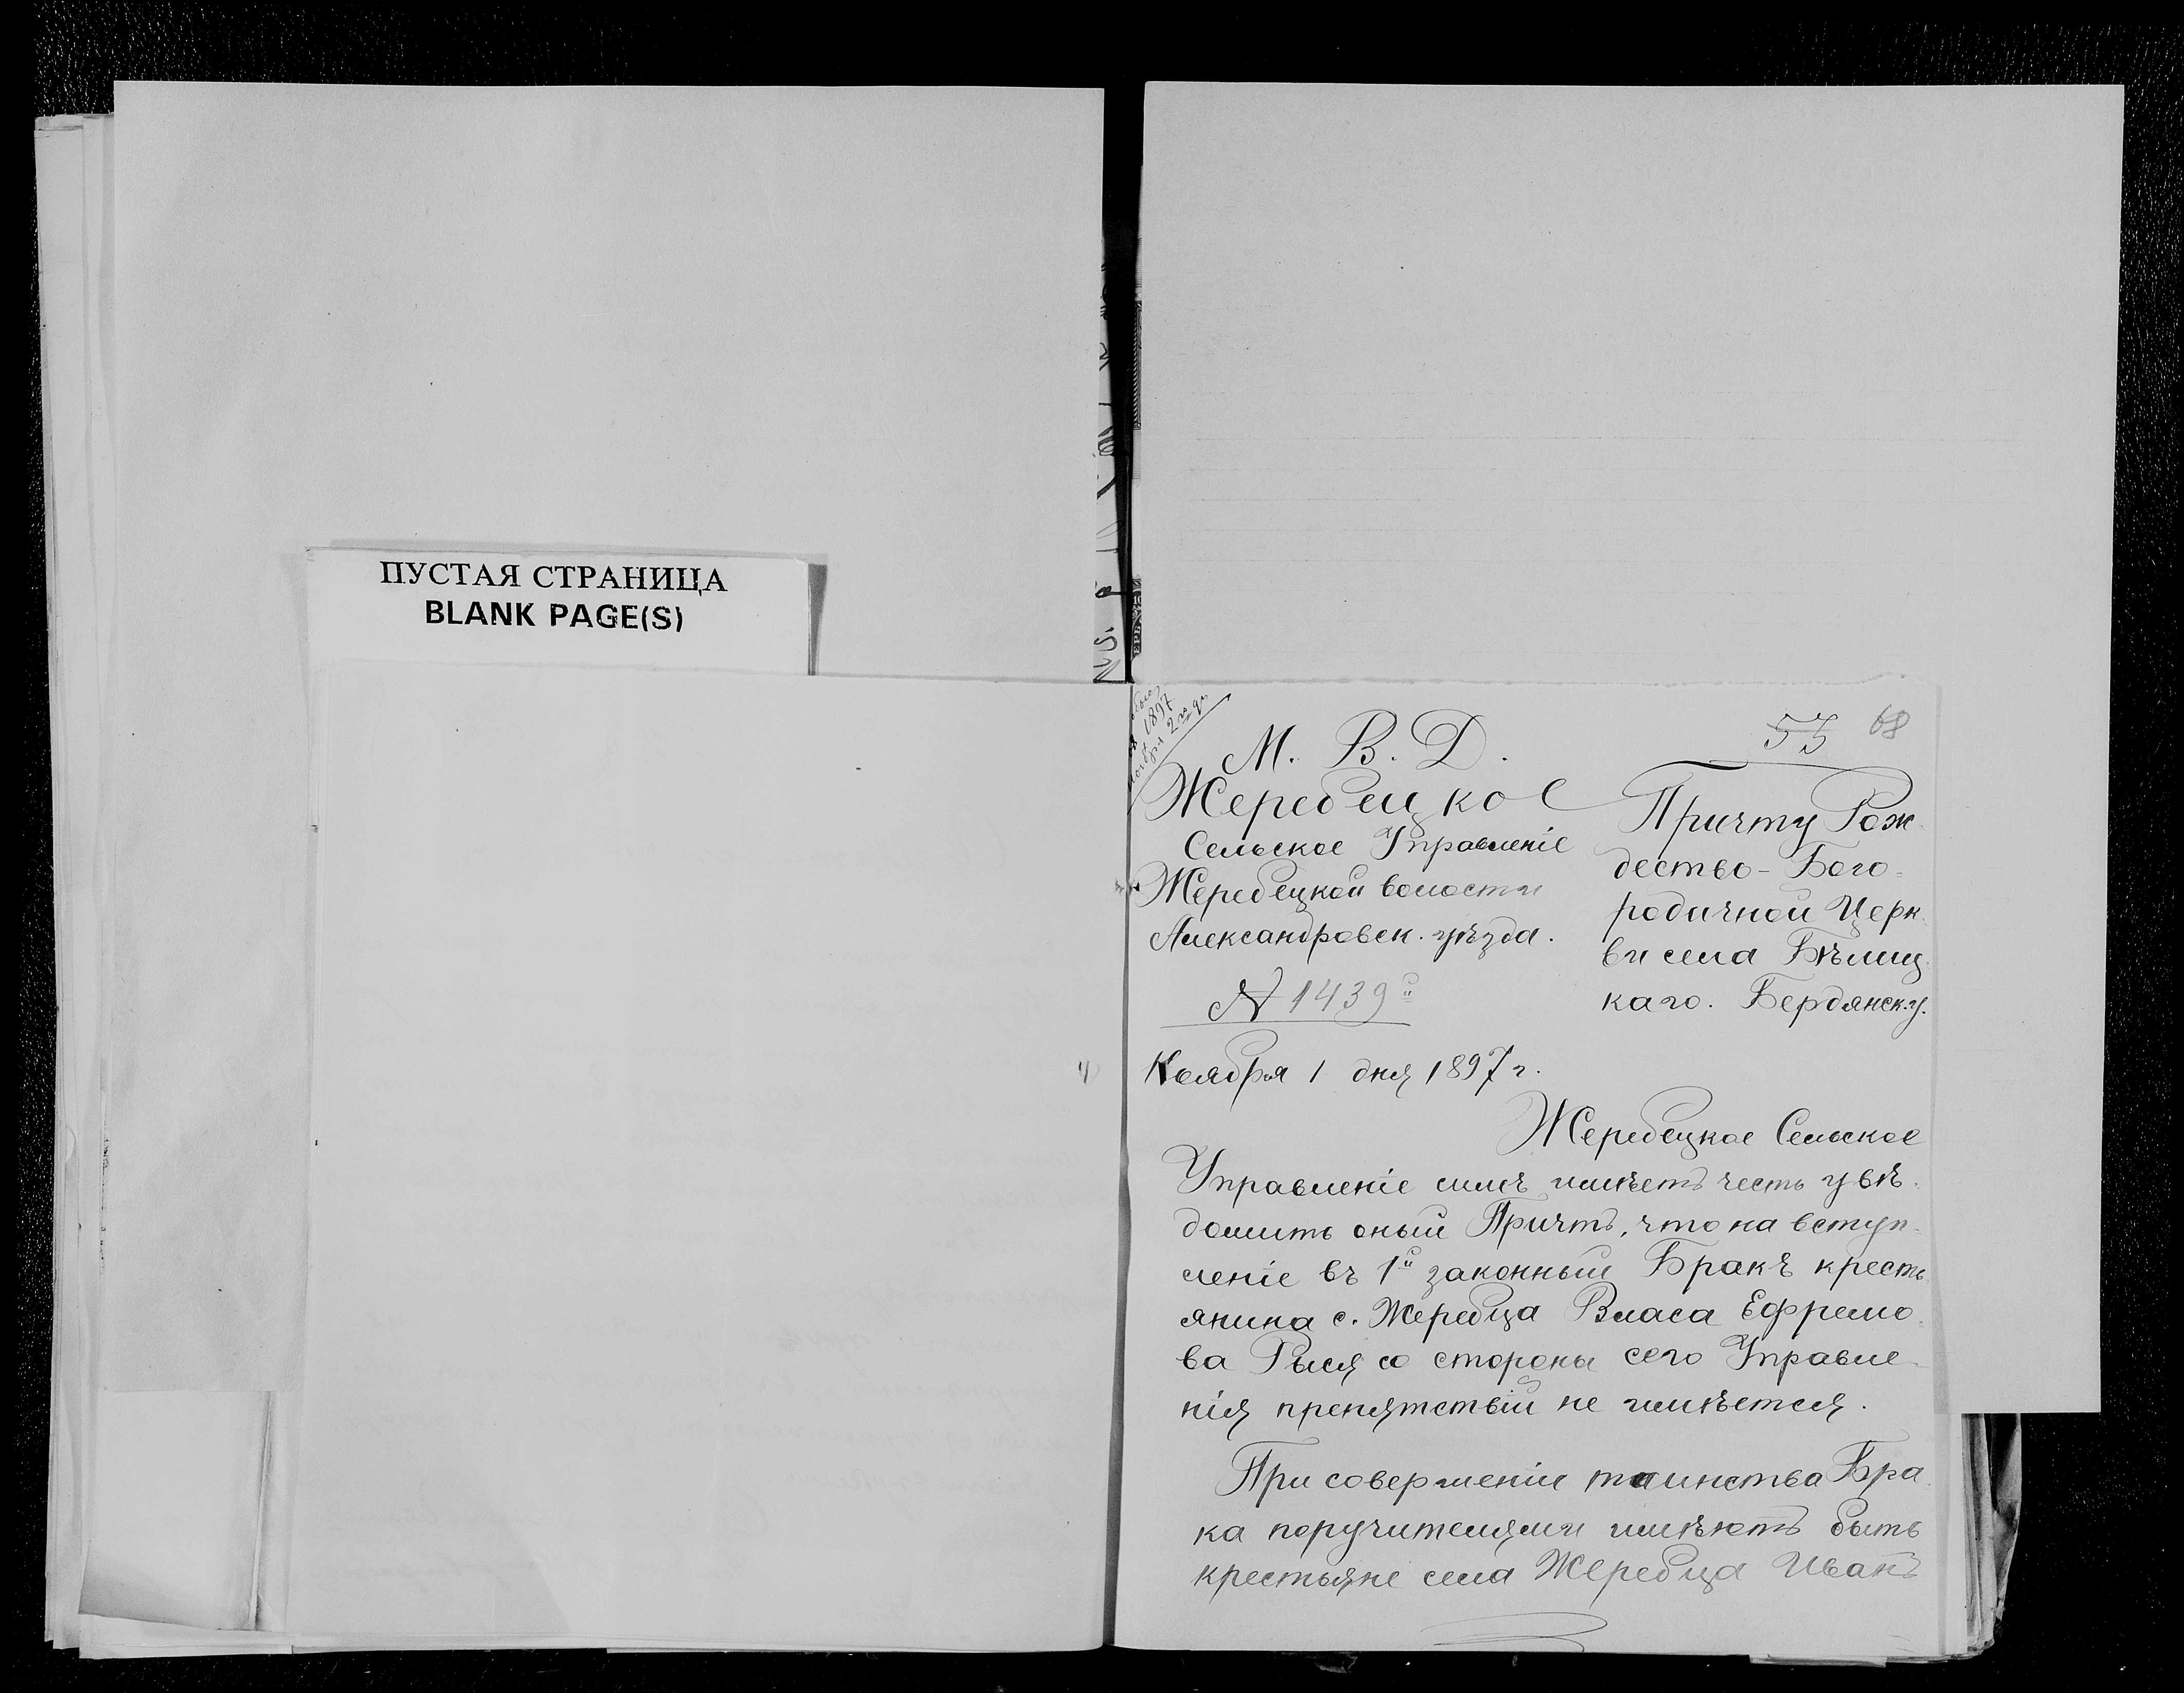 ПУСТАЯ СТРАНИЦА
BLANK PAGE(S)
1897
ноября 2го дн
55 68
М. В. Д.
Жеребецкое
Сельское Управленіе
Жеребецкой волости
Александровск. уѣзда.
№ 1439й
Ноября 1 дня 1897 г.
Причту Рож-
дество-Бого-
родичной Церк-
ви села Бѣлиц-
каго. Бердянск. у.
Жеребецкое Сельское
Управленіе симъ имѣетъ честь увѣ-
домить оный Причтъ, что на вступ-
леніе въ 1й законный Бракъ кресть-
янина с. Жеребца Власа Ефремо-
ва Рыся со стороны сего Управле-
нія препятствій не имѣется.
При совершеніи таинства Бра-
ка поручителями имѣютъ быть
крестьяне села Жеребца Иванъ